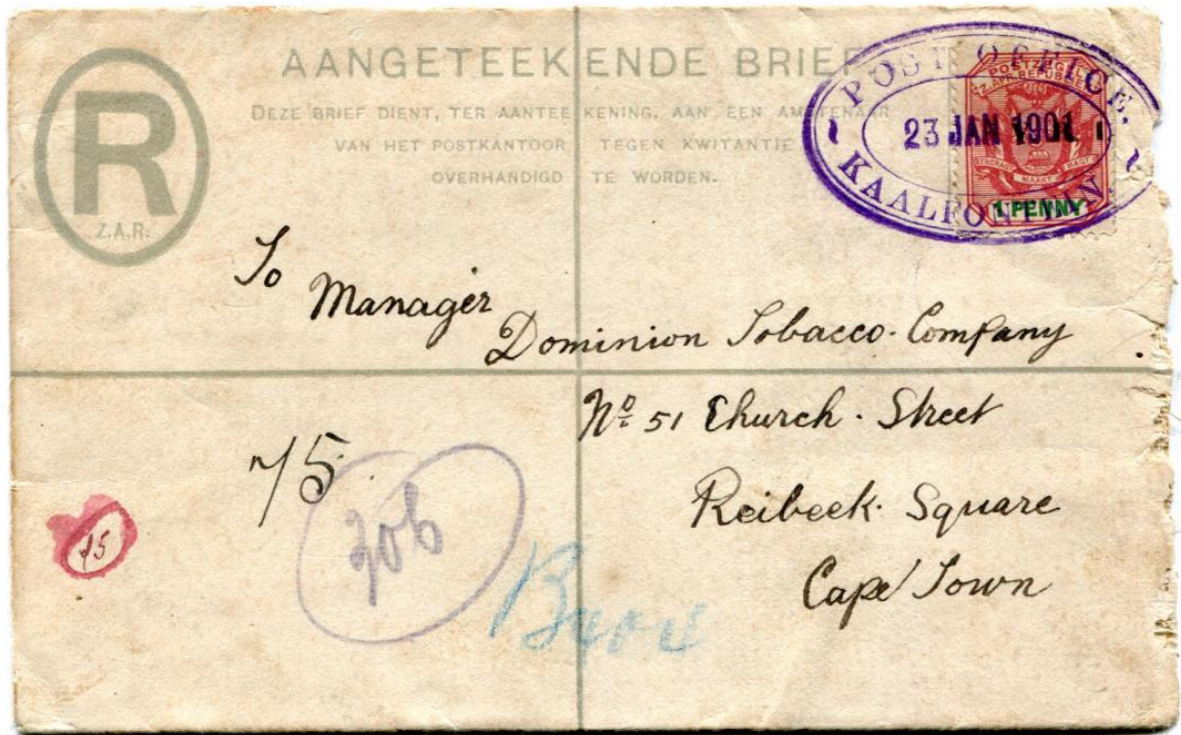 AANGETEEKENDE BRIEF
DEZE BRIEF DIENT, TER AANTEEKENING, AAN EEN AMBTENAAR
VAN HET POSTKANTOOR TEGEN KWITANTIE
OVERHANDIGD TE WORDEN.
R
Z.A.R.
POST OFFICE.
23 JAN 1901
KAALFONTEIN.
POSTZEGEL
Z. AFR. REPUBLIEK
EENDRAGT MAAKT MAGT
1 PENNY
To
Manager
Dominion Tobacco Company
No 51 Church Street
Reibeek Square
Cape Town
75
706
75